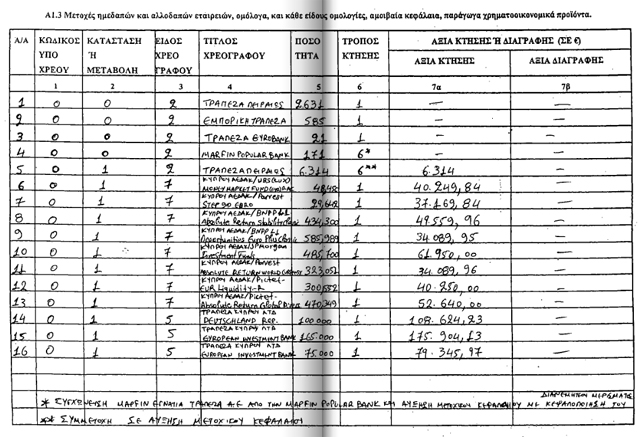 Α1.3 Μετοχές ημεδαπών και αλλοδαπών εταιρειών, ομόλογα, και κάθε είδους ομολογίες, αμοιβαία κεφάλαια, παράγωγα χρηματοοικονομικά προϊόντα.
Α/Α ΚΩΔΙΚΟΣ ΥΠΟ ΧΡΕΟΥ ΚΑΤΑΣΤΑΣΗ Ή ΜΕΤΑΒΟΛΗ ΕΙΔΟΣ ΧΡΕΟ ΓΡΑΦΟΥ ΤΙΤΛΟΣ ΧΡΕΟΓΡΑΦΟΥ ΠΟΣΟ ΤΗΤΑ ΤΡΟΠΟΣ ΚΤΗΣΗΣ ΑΞΙΑ ΚΤΗΣΗΣ Ή ΔΙΑΓΡΑΦΗΣ (ΣΕ €)
ΑΞΙΑ ΚΤΗΣΗΣ ΑΞΙΑ ΔΙΑΓΡΑΦΗΣ
1 2 3 4 5 6 7α 7β
1 0 0 2 ΤΡΑΠΕΖΑ ΠΕΙΡΑΙΩΣ 2.631 1 — —
2 0 0 2 ΕΜΠΟΡΙΚΗ ΤΡΑΠΕΖΑ 585 1 — —
3 0 0 2 ΤΡΑΠΕΖΑ EUROBANK 21 1 — —
4 0 0 2 MARFIN POPULAR BANK 171 6* — —
5 0 1 2 ΤΡΑΠΕΖΑ ΠΕΙΡΑΙΩΣ 6.314 6** 6.314 —
6 0 1 7 ΚΥΠΡΟΥ ΑΕΔΑΚ/UBS(LUX) MONEY MARKET FUND 1 40.249,84 —
7 0 1 7 ΚΥΠΡΟΥ ΑΕΔΑΚ/Parvest STEP 90 EURO 1 37.169,84 —
8 0 1 7 ΚΥΠΡΟΥ ΑΕΔΑΚ/BNPP Absolute Return 434,300 1 49.559,96 —
9 0 1 7 ΚΥΠΡΟΥ ΑΕΔΑΚ/BNPP Opportunities Euro Plus 585,989 1 34.089,95 —
10 0 1 7 ΚΥΠΡΟΥ ΑΕΔΑΚ/JPMorgan Investment Funds 485,700 1 61.950,00 —
11 0 1 7 ΚΥΠΡΟΥ ΑΕΔΑΚ/Parvest ABSOLUTE RETURN WORLD 323,052 1 34.089,96 —
12 0 1 7 ΚΥΠΡΟΥ ΑΕΔΑΚ/Pictet- EUR Liquidity-R 300,552 1 40.250,00 —
13 0 1 7 ΚΥΠΡΟΥ ΑΕΔΑΚ/Pictet- Absolute Return Global 470,349 1 52.640,00 —
14 0 1 5 ΤΡΑΠΕΖΑ ΚΥΠΡΟΥ ΛΤΔ DEUTSCHLAND REP. 100.000 1 108.624,23 —
15 0 1 5 ΤΡΑΠΕΖΑ ΚΥΠΡΟΥ ΛΤΔ EUROPEAN INVESTMENT BANK 165.000 1 175.904,13 —
16 0 1 5 ΤΡΑΠΕΖΑ ΚΥΠΡΟΥ ΛΤΔ EUROPEAN INVESTMENT BANK 75.000 1 79.345,97 —
* ΣΥΓΧΩΝΕΥΣΗ MARFIN ΕΓΝΑΤΙΑ ΤΡΑΠΕΖΑ Α.Ε ΑΠΟ ΤΗΝ MARFIN POPULAR BANK ΚΑΙ ΑΥΞΗΣΗ ΜΕΤΟΧΙΚΟΥ ΚΕΦΑΛΑΙΟΥ ΜΕ ΚΕΦΑΛΟΠΟΙΗΣΗ ΤΟΥ
** ΣΥΜΜΕΤΟΧΗ ΣΕ ΑΥΞΗΣΗ ΜΕΤΟΧΙΚΟΥ ΚΕΦΑΛΑΙΟΥ